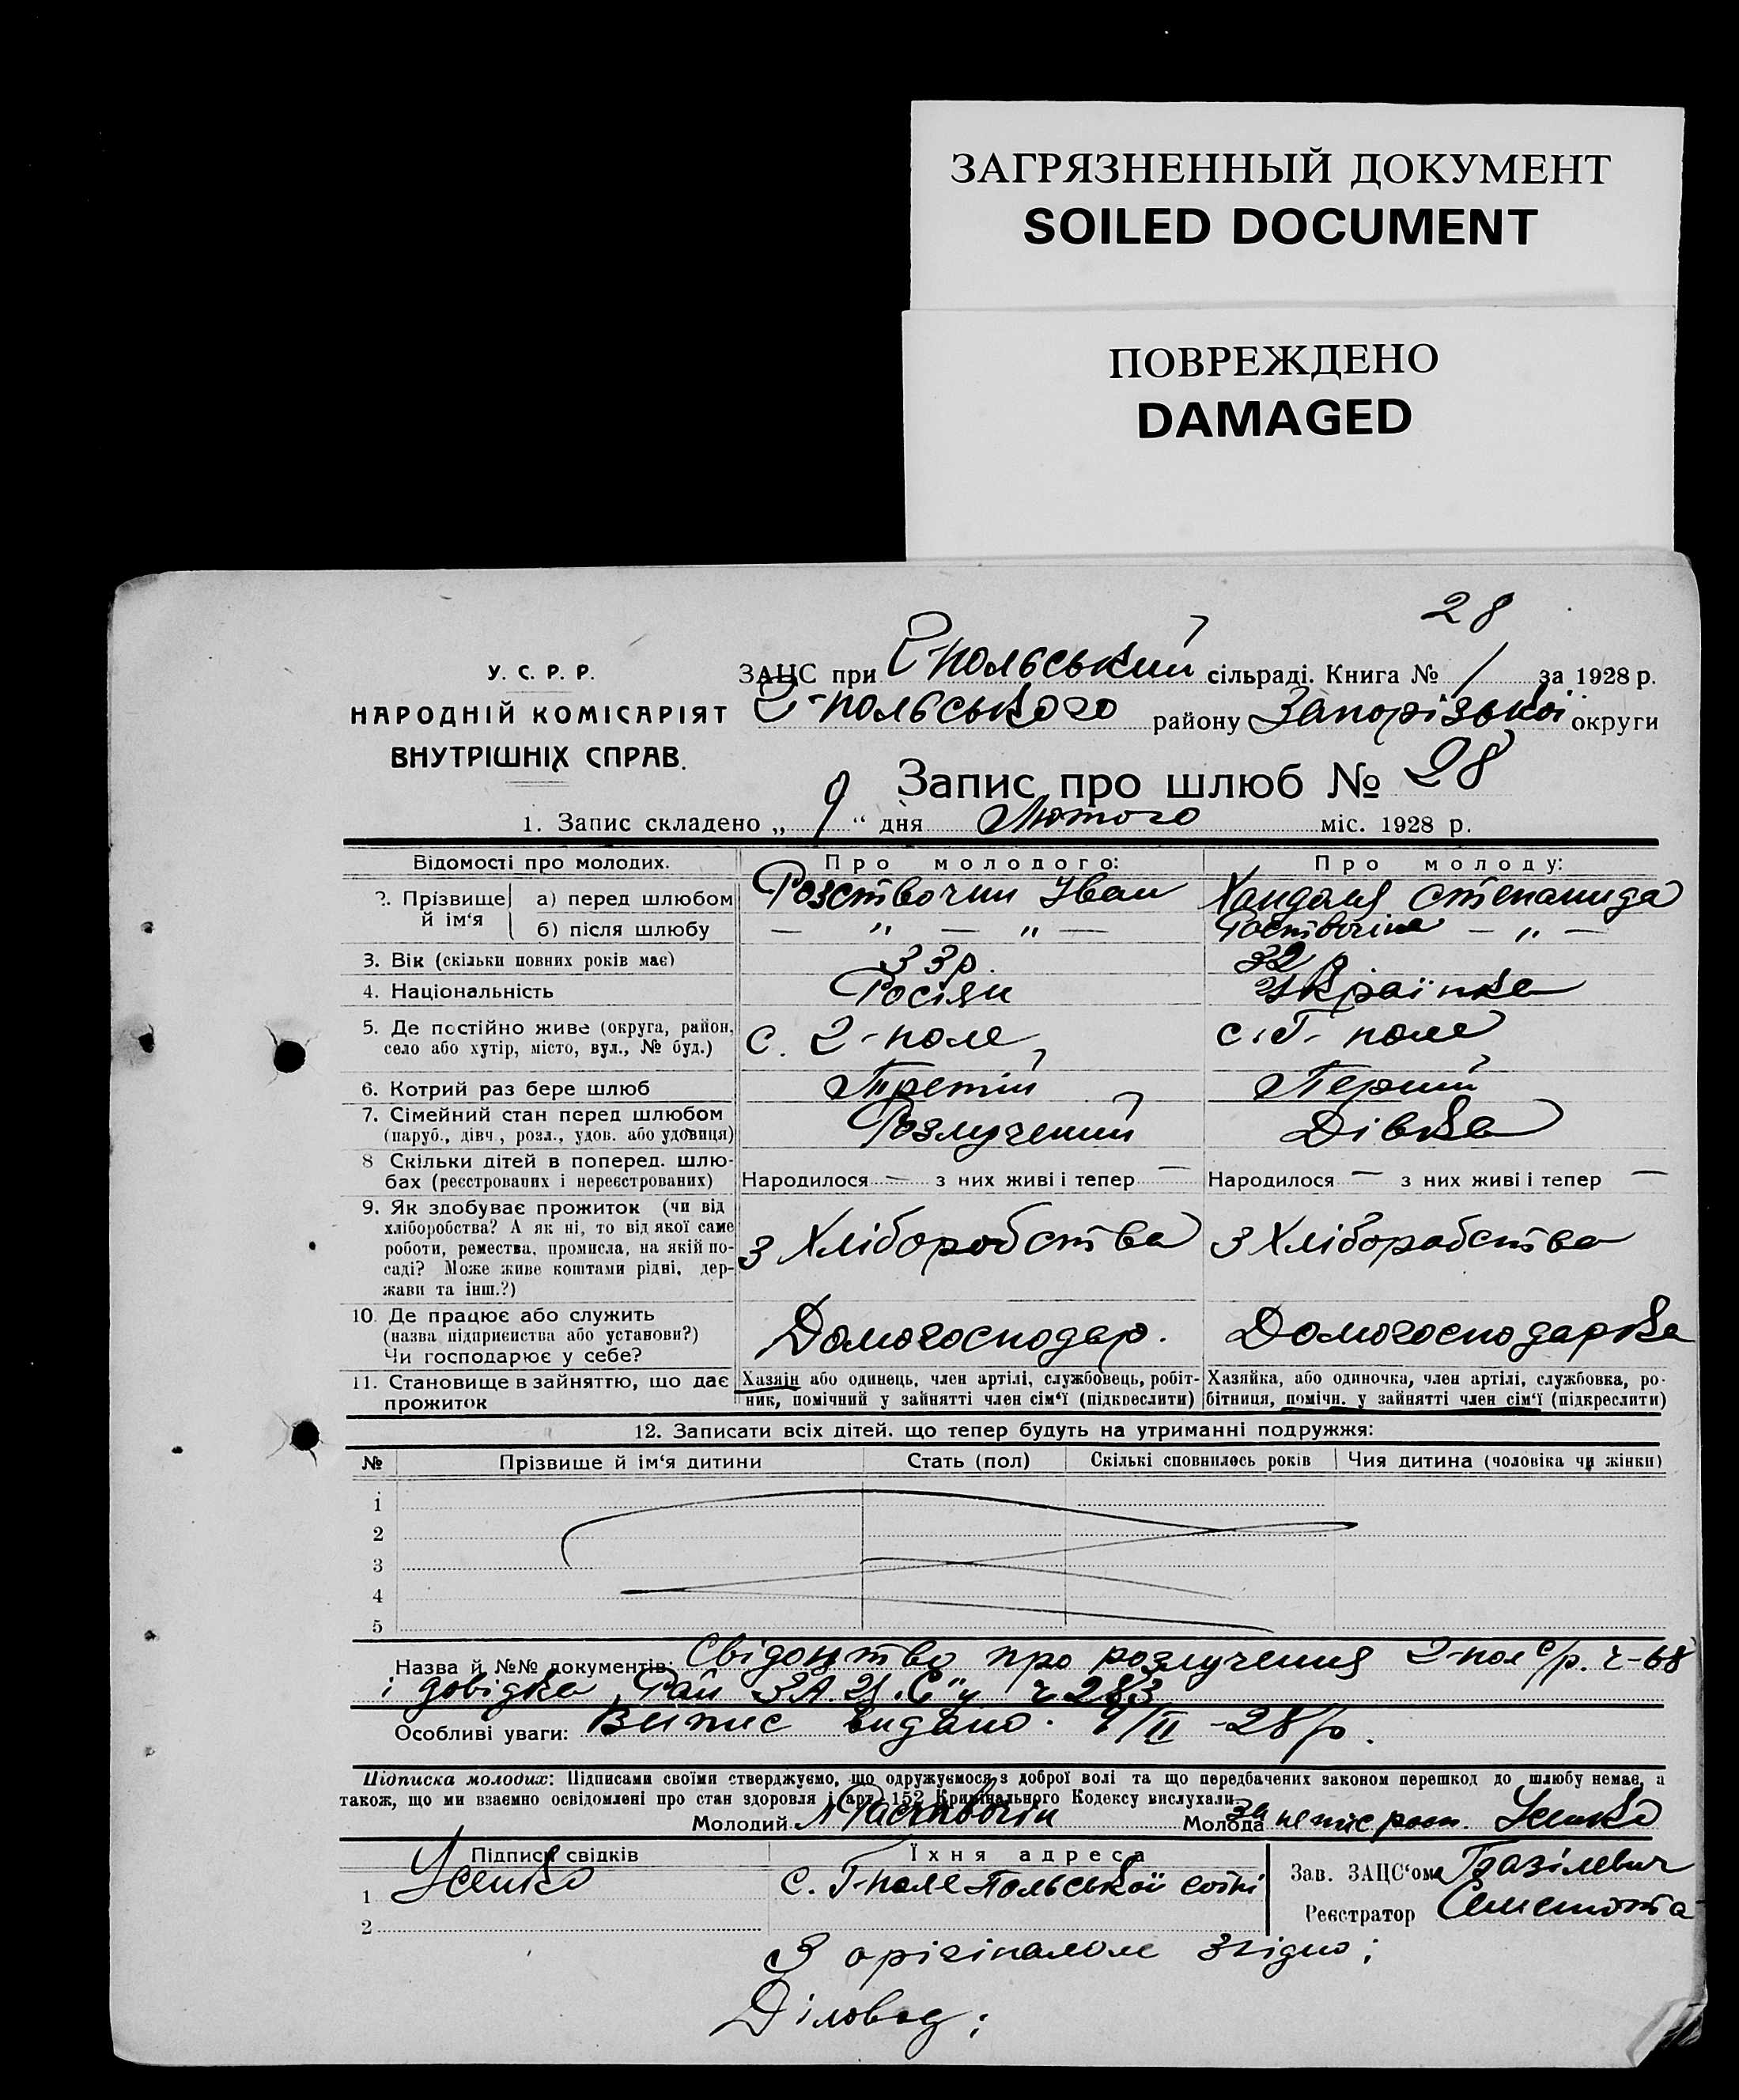 ЗАГРЯЗНЕННЫЙ ДОКУМЕНТ
SOILED DOCUMENT
ПОВРЕЖДЕНО
DAMAGED
28
У. С. Р. Р.
НАРОДНІЙ КОМІСАРІЯТ
ВНУТРІШНІХ СПРАВ.
ЗАЦС при Г-польський сільраді. Книга № 1 за 1928 р.
Г-польського району Запорізької округи
Запис про шлюб № 28
1. Запис складено „ 9 “ дня Лютого міс. 1928 р.
Відомості про молодих. Про молодого: Про молоду:
2. Прізвище й ім‘я а) перед шлюбом Іван Степанида
б) після шлюбу — " — " — — " —
3. Вік (скільки повних років має) 33 р. 32 р
4. Національність Росіян Українка
5. Де постійно живе (округа, район, с. Г-поле с. Г-поле
село або хутір, місто, вул., № буд.)
6. Котрий раз бере шлюб Третій Перший
7. Сімейний стан перед шлюбом Розлучений Дівка
(паруб., дівч., розл., удов. або удовиця)
8 Скільки дітей в поперед. шлю-
бах (реєстрованих і нереєстрованих) Народилося — з них живі і тепер — Народилося — з них живі і тепер —
9. Як здобуває прожиток (чи від
хліборобства? А як ні, то від якої саме
роботи, ремества, промисла, на якій по- з Хліборобства з Хліборобства
саді? Може живе коштами рідні, дер-
жави та інш.?)
10. Де працює або служить
(назва підприємства або установи?) Домогосподар. Домогосподарка
Чи господарює у себе?
11. Становище в зайняттю, що дає Хазяїн або одинець, член артілі, службовець, робіт- Хазяйка, або одиночка, член артілі, службовка, ро-
прожиток ник, помічний у зайнятті член сім‘ї (підкреслити) бітниця, помічн. у зайнятті член сім‘ї (підкреслити)
12. Записати всіх дітей. що тепер будуть на утриманні подружжя:
№ Прізвище й ім‘я дитини Стать (пол) Скількі сповнилось років Чия дитина (чоловіка чи жінки)
1
2
3
4
5
Назва й №№ документів: Свідоцтво про розлучення Г-пол с/р. ч-68
і довідка Рай З.А.Ц.С"у ч 283
Особливі уваги: Витис видано. 9/II-28 р.
Підписка молодих: Підписами своїми стверджуємо, що одружуємося з доброї волі та що передбачених законом перешкод до шлюбу немає, а
також, що ми взаємно освідомлені про стан здоровля і арт. 152 Кримінального Кодексу вислухали.
Молодий Молода за непис росп. Усенко
Підписи свідків Їхня адреса
1 Усенко с. Г-поле Польської сотні Зав. ЗАЦС‘ом Базілевич
2 Реєстратор
З орігіналом згідно;
Діловод;